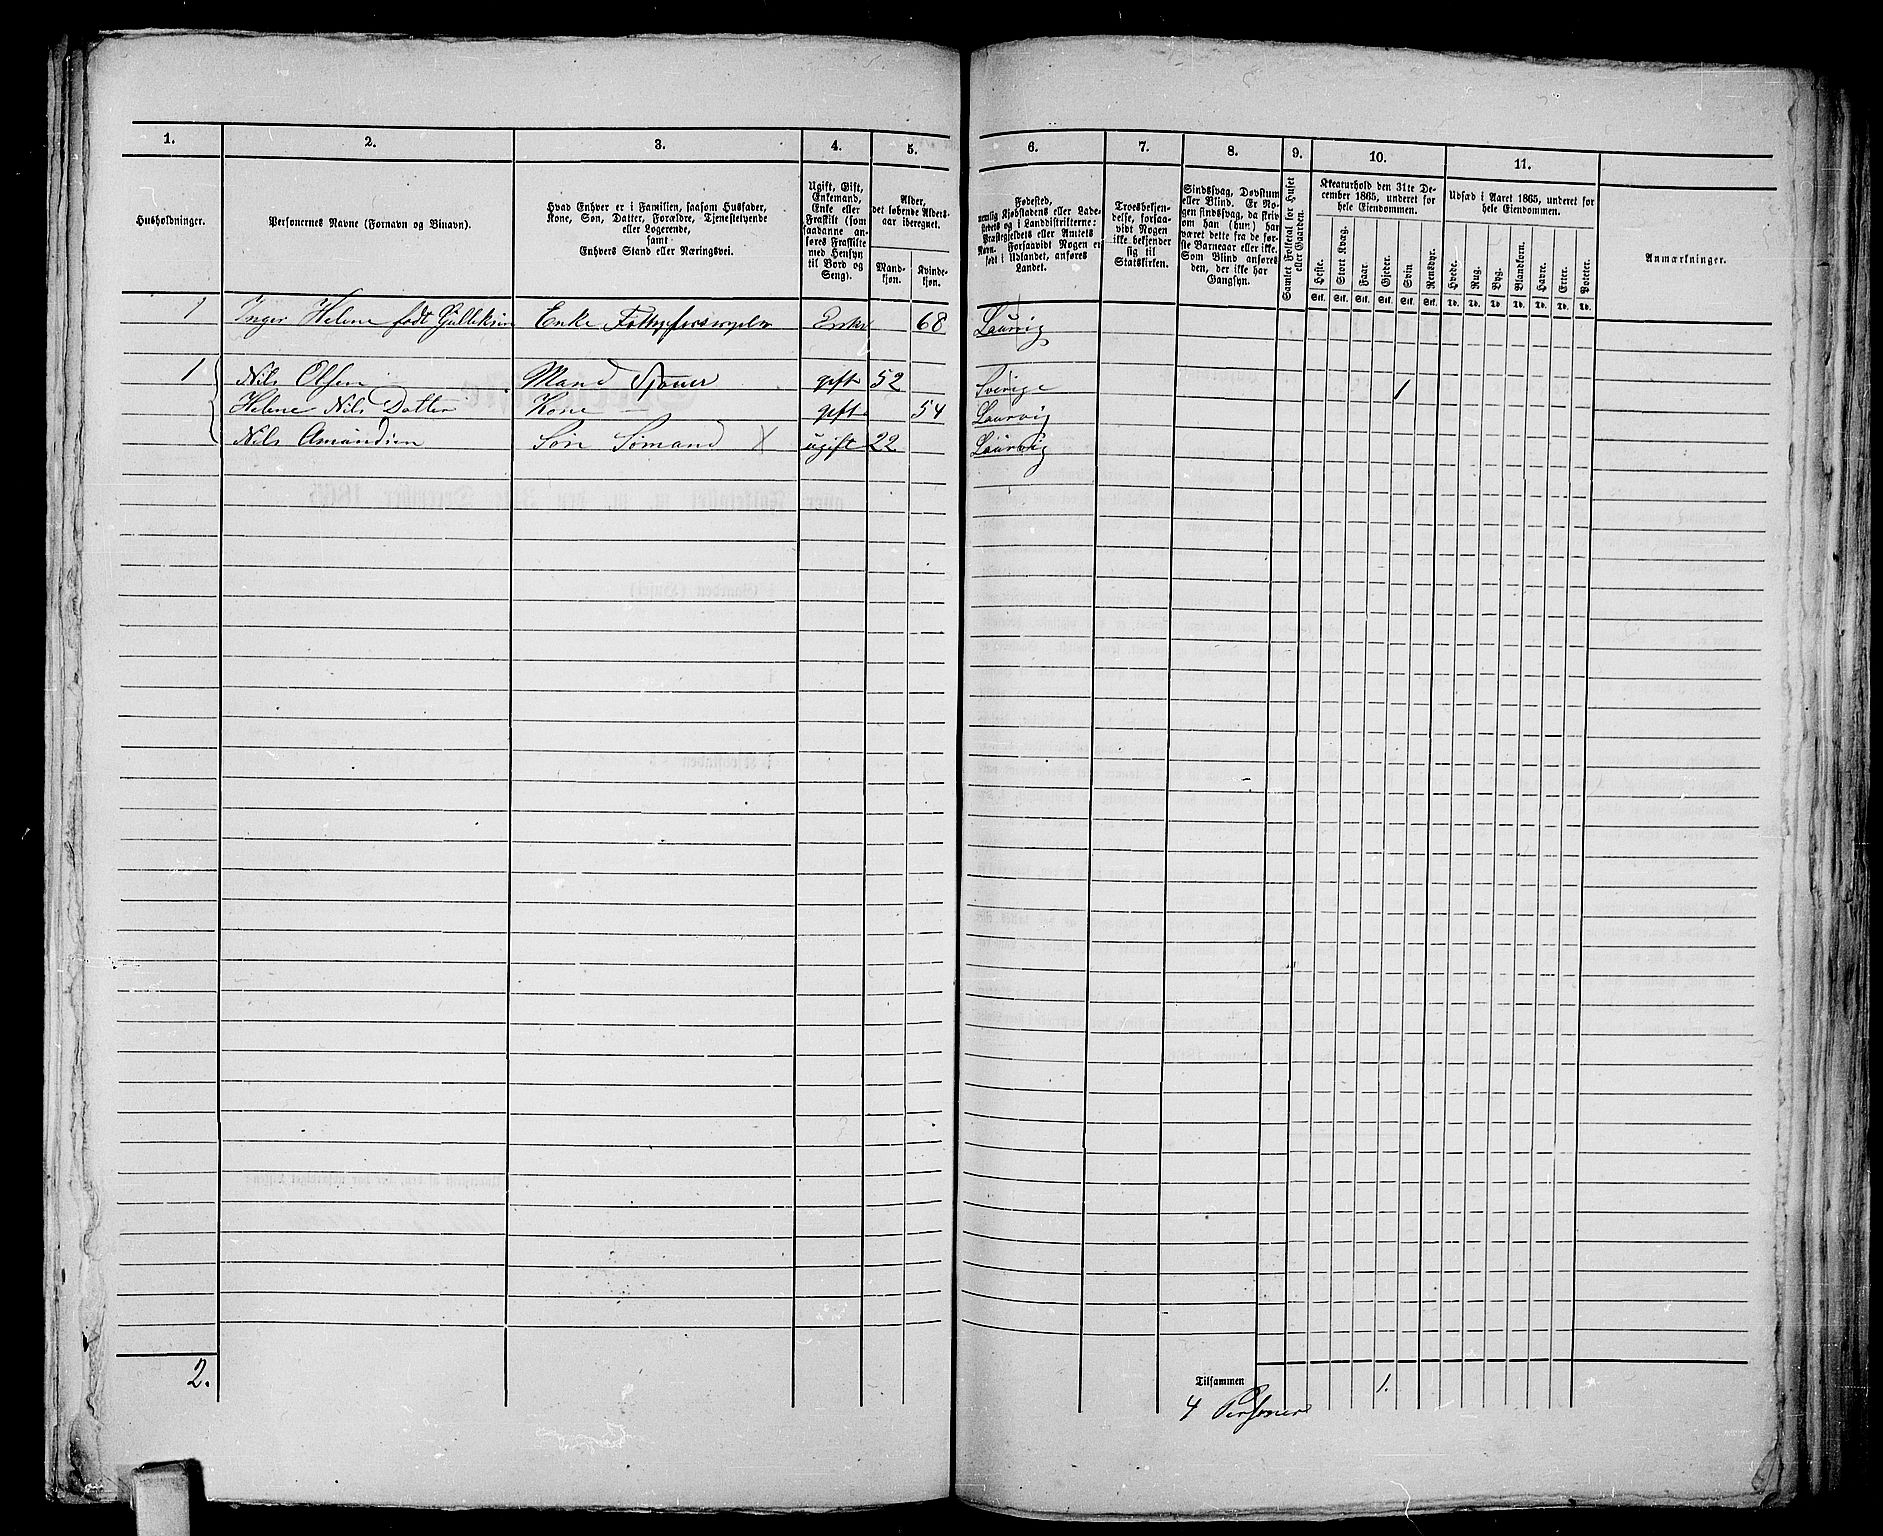 1. 2. 3. 4. 5. 6. 7. 8. 9. 10. 11.
Husholdninger.
Personernes Navne (Fornavn og Binavn).
Hvad Enhver er i Familien, saasom Husfader,
Kone, Søn, Datter, Forældre, Tjenestetyende
eller Logerende,
samt
Enhvers Stand eller Næringsvei.
Ugift, Gift,
Enkemand,
Enke eller
Fraskilt (som
saadanne an-
føres Fraskilte
med Hensyn
til Bord og
Seng).
Alder,
det løbende Alders-
aar iberegnet.
Mand-
kjøn.
Kvinde-
kjøn.
Fødested,
nemlig Kjøbstadens eller Lade-
stedets og i Landdistrikterne:
Præstegjeldets eller Amtets
Navn. Forsaavidt Nogen er
født i Udlandet, anføres
Landet.
Troesbekjen-
delse, forsaa-
vidt Nogen
ikke bekjender
sig til
Statskirken.
Sindssvag, Døvstum
eller Blind. Er No-
gen sindssvag, da skriv
om han (hun) har
været dette fra de før-
ste Barneaar eller ikke.
Som Blind anføres
den, der ikke har
Gangsyn.
Samlet Folketal for Huset
eller Gaarden.
Kreaturhold den 31te De-
cember 1865, underet for
hele Eiendommen.
Heste.
Stort Kvæg.
Faar.
Gjeder.
Svin.
Rensdyr.
Stk. Stk. Stk. Stk. Stk. Stk.
Udsæd i Aaret 1865, underet for
hele Eiendommen.
Hvede.
Rug.
Byg.
Blandkorn.
Havre.
Erter.
Poteter.
Td. Td. Td. Td. Td. Td. Td.
Anmærkninger.
1 Inger Helene født Enke Enke 68 Laurvig
1 Nils Olsen Mand gift 52 Sverige 1
Helene Nils Datter Kone — gift 54 Laurvig
Nils Amundsen Søn Sømand X ugift 22 Laurvig
2.
Tilsammen 1.
4 Personer